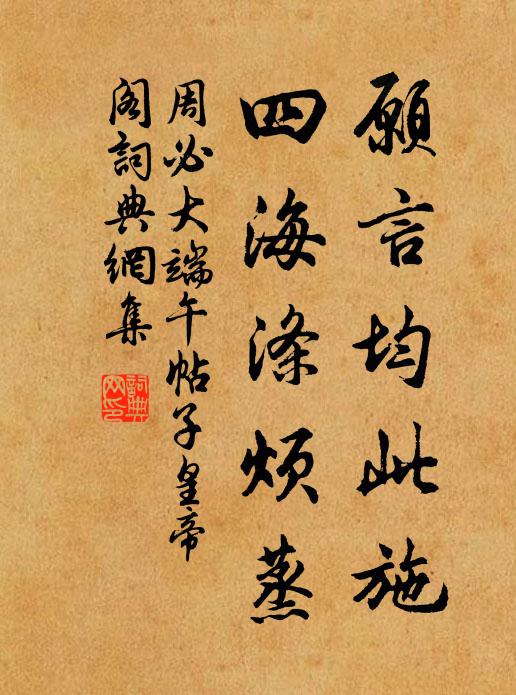 願言均此施
四海滌煩蒸
周必大端午帖子皇帝
閣詞典網集
詞典
网印